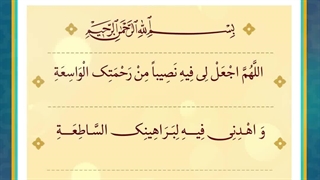 بِسْمِ اللهِ الرَّحْمنِ الرَّحِيمِ
اللَّهُمَّ اجْعَلْ لِی فِيهِ نَصِيباً مِنْ رَحْمَتِکَ الْوَاسِعَةِ
وَ اهْدِنِی فِيهِ لِبَرَاهِينِکَ السَّاطِعَةِ